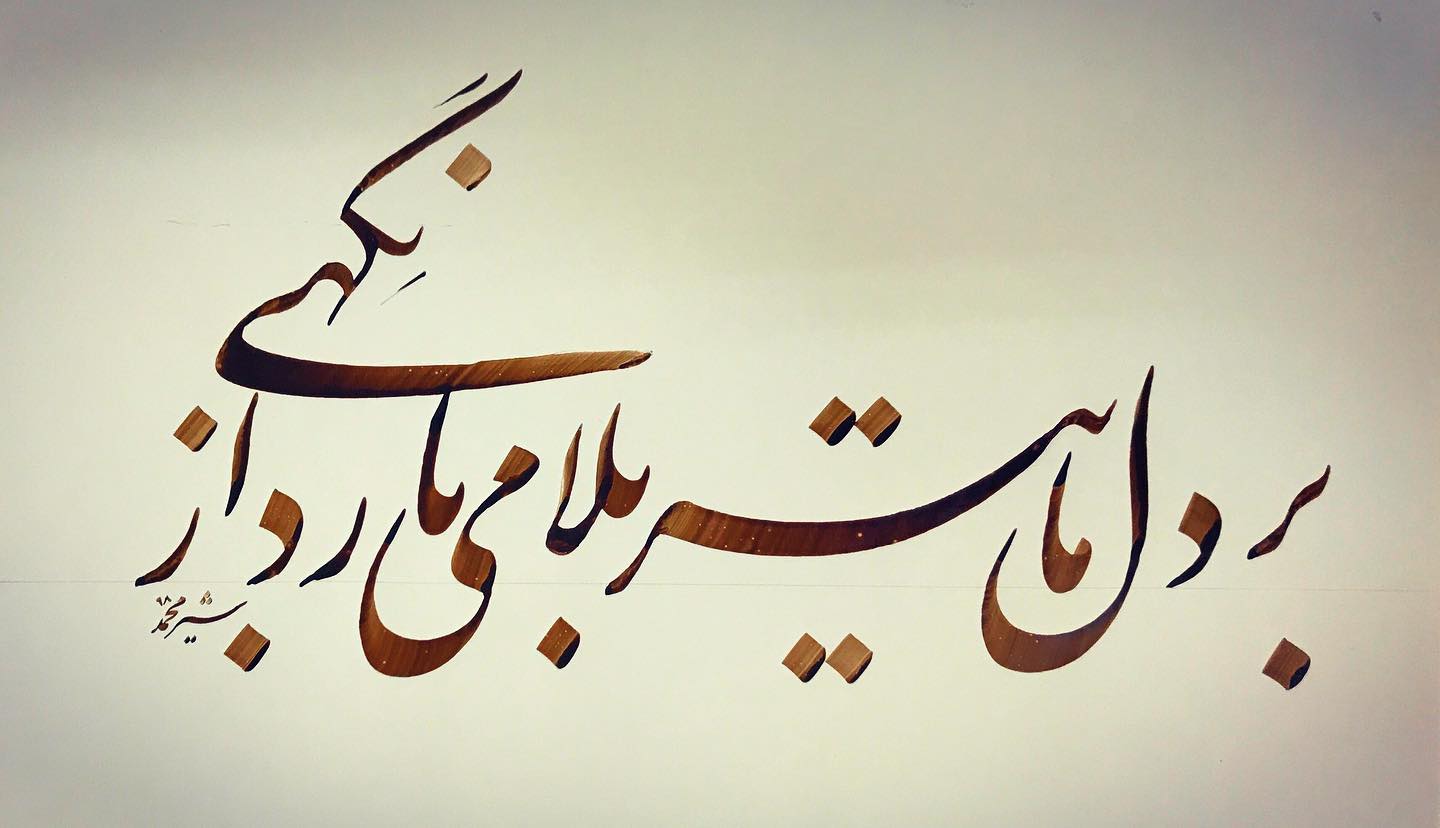 بر دل ما تیر بلا می بارد از نگِهی
شیرمحمد ۹۸